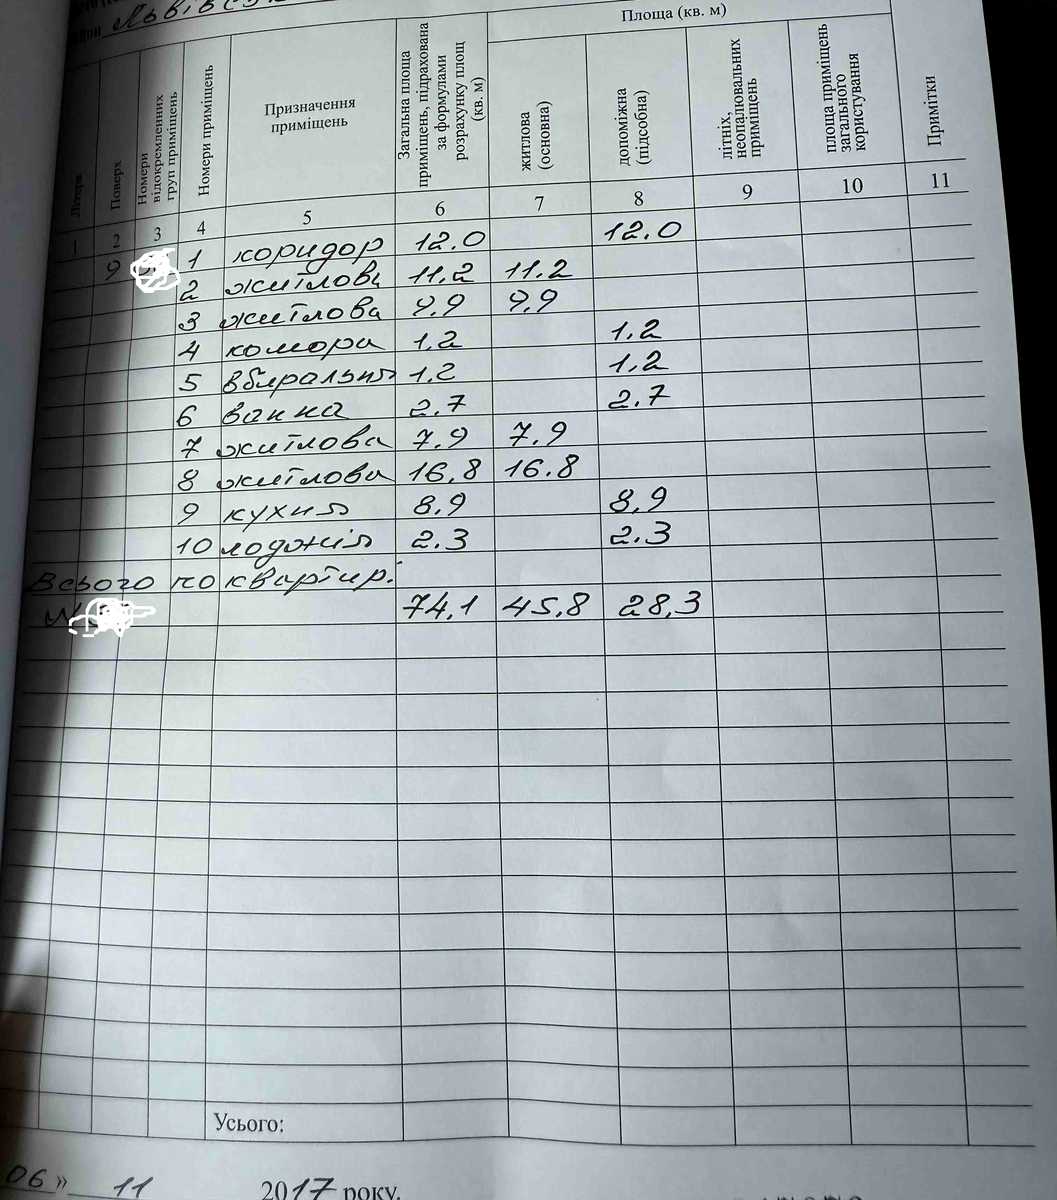 Площа (кв. м)
Літера
Поверх
Номери відокремленних груп приміщень
Номери приміщень
Призначення приміщень
Загальна площа приміщень, підрахована за формулами розрахунку площ (кв. м)
житлова (основна)
допоміжна (підсобна)
літніх, неопалювальних приміщень
площа приміщень загального користування
Примітки
1 2 3 4 5 6 7 8 9 10 11
9 1 коридор 12.0 12.0
2 житлова 11.2 11.2
3 житлова 9.9 9.9
4 комора 1.2 1.2
5 вбиральня 1.2 1.2
6 ванна 2.7 2.7
7 житлова 7.9 7.9
8 житлова 16.8 16.8
9 кухня 8.9 8.9
10 лоджія 2.3 2.3
Всього по квартирі
74.1 45.8 28.3
Усього:
06» 11 2017 року.